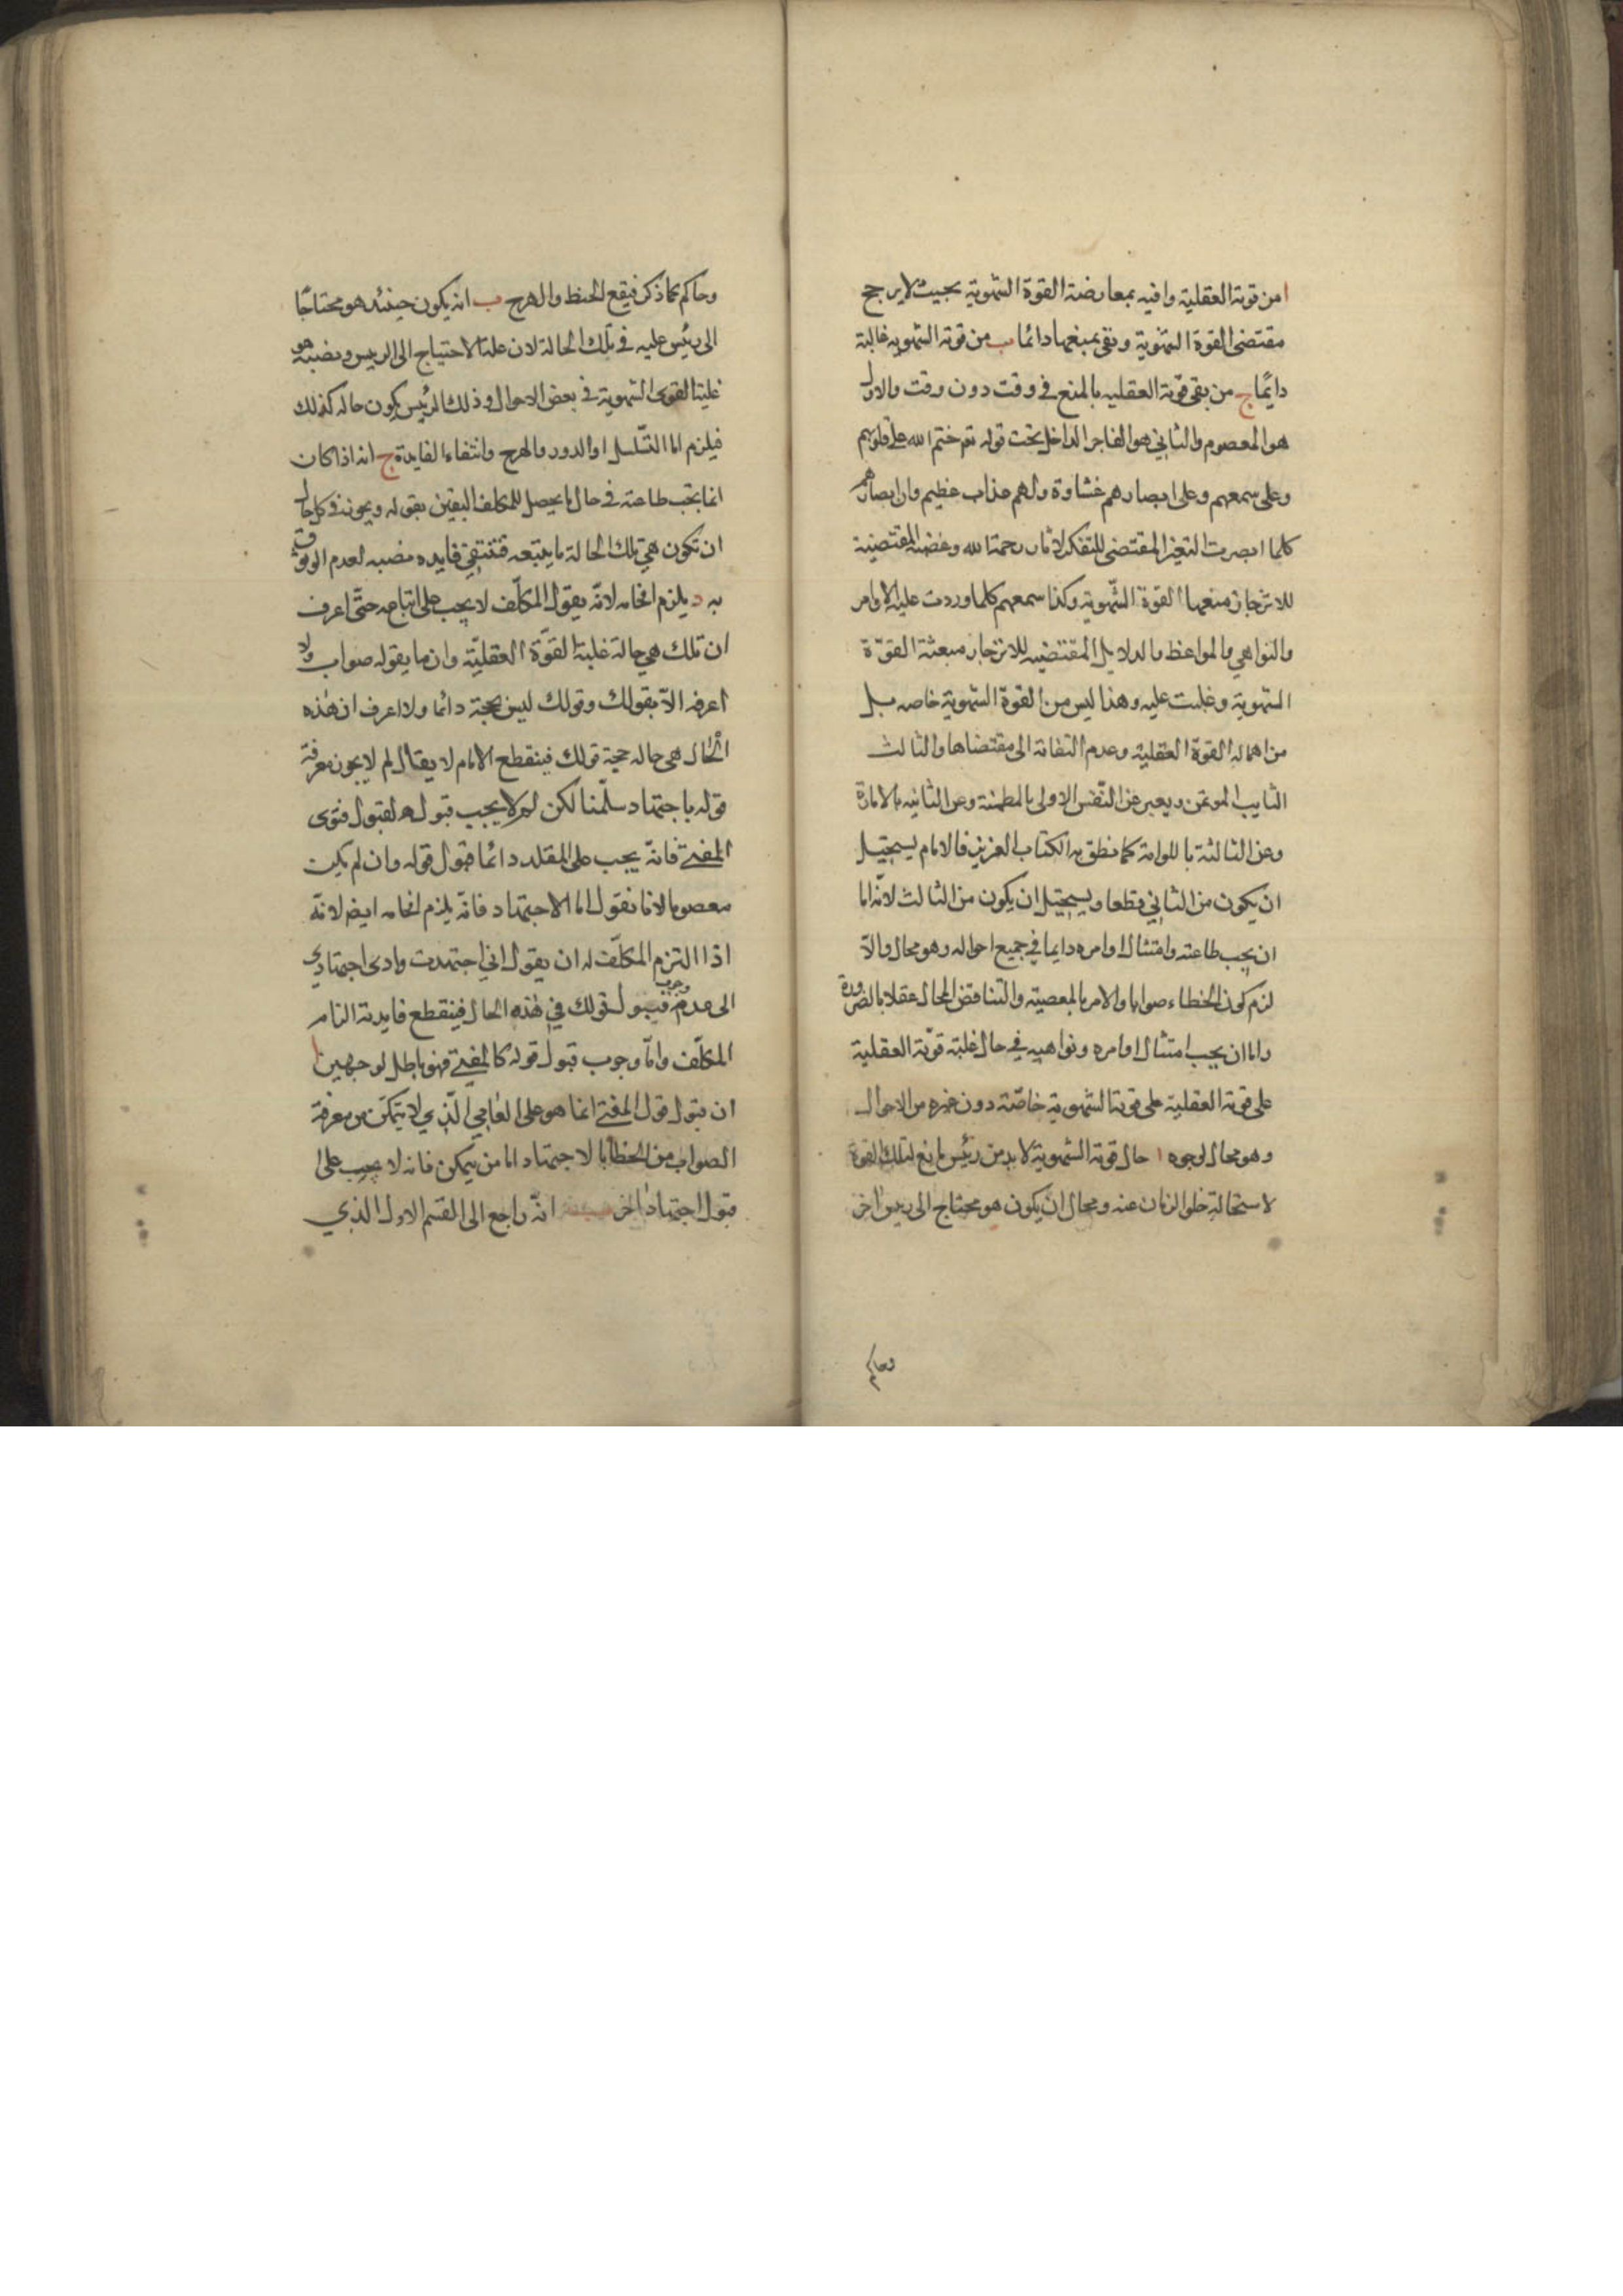 ا من قوته العقلية وافيه بمعارضة القوة الشهوية بحيث لا يرجح
مقتضى القوة الشهوية وتفى بمنعها دائما ب من قوته الشهويه غالبة
دايمًا ج من يفى قوته العقليه بالمنع فى وقت دون وقت والاول
هو المعصوم والثاني هو الفاجر الداخل تحت قوله تعـ ختم الله على قلوبهم
وعلى سمعهم وعلى ابصارهم غشاوة ولهم عذاب عظيم وان ابصارهم
كلما ابصرت التغير المقتضى للتفكر لاثار رحمة الله وغضبه المقتضية
للانزجار منعها القوة الشهوية وكذا سمعهم كلما وردت عليه الاوامر
والنواهي والمواعظ والدلايل المقتضيه للانزجار منعته القوّة
الشهوية وغلبت عليه وهذا ليس من القوة الشهوية خاصه بل
من اهماله القوة العقلية وعدم التفاته الى مقتضاها والثالث
التايب الموتمن ويعبر عن النّفس الاولى بالمطمئنة وعن الثانيه بالامارة
وعن الثالثة باللوامة كما نطق به الكتاب العزيز فالامام يستحيل
ان يكون من الثاني قطعا ويستحيل ان يكون من الثالث لانّه اما
ان يجب طاعته وامتثال اوامره دايما في جميع احواله وهو محال والّا
لزم كون الخطاء صوابا والامر بالمعصية والتناقض المحال عقلا بالضرورة
واما ان يجب امتثال اوامره ونواهيه في حال غلبة قوّته العقلية
على قوته العقلية على قوته الشهوية خاصّة دون غيره من الاحوال
وهو محال لوجوه ا حال قوته الشهوية لا بد من رئيس مانع لتلك القوة
لاستحالة خلو الزمان عنه ومحال ان يكون هو محتاج الى رييس اخر
وحاكم
وحاكم كما ذكر فيقع الخبط والهرج ب انه يكون حينئذ هو محتاجًا
الى رئيس عليه فى تلك الحالة لان علة الاحتياج الى الرييس ونصبه هو
غلبة القوى الشهوية فى بعض الاحوال وذلك الرئيس يكون حاله كذلك
فيلزم اما التّسلسل او الدور والهرج وانتفاء الفايدة ج انه اذا كان
انما يجب طاعته فى حال ما يحصل للمكلف اليقين بقوله ويجوز فى كل حال
ان تكون هي تلك الحالة ما يتبعه فتنتفي فايده نصبه لعدم الوثوق
به د يلزم افحامه لانّه يقول المكلّف لا يجب على اتباعه حتّى اعرف
ان تلك هي حالة غلبة القوّة العقليّة وان ما يقوله صواب ولا
اعرفه الّا بقولك وقولك ليس بحجة دائما ولا اعرف ان هذه
الحال هى حاله حجية قولك فينقطع الامام لا يقال لم لا يجوز معرفة
قوله باجتهاد سلّمنا لكن لم لا يجب قبوله لقبول فتوى
المفتى فانّه يجب على المقلد دائما قبول قوله وان لم يكن
معصوما لانا نقول اما الاجتهاد فانّه يلزم افحامه ايضا لانّه
اذا التزم المكلّف له ان يقول اني اجتهدت وادى اجتهادي
الى عدم وجوب قبول قولك في هذه الحال فينقطع فايدته الزام
المكلّف وامّا وجوب قبول قوله كالمفتى فهو باطل لوجهين ا
ان قبول قول المفتى انما هو على العامي الّذي لا يتمكن من معرفة
الصواب من الخطأ بالاجتهاد اما من يتمكن فانه لا يجب على
قبول اجتهاد اخر ب انّه راجع الى القسم الاول الذي